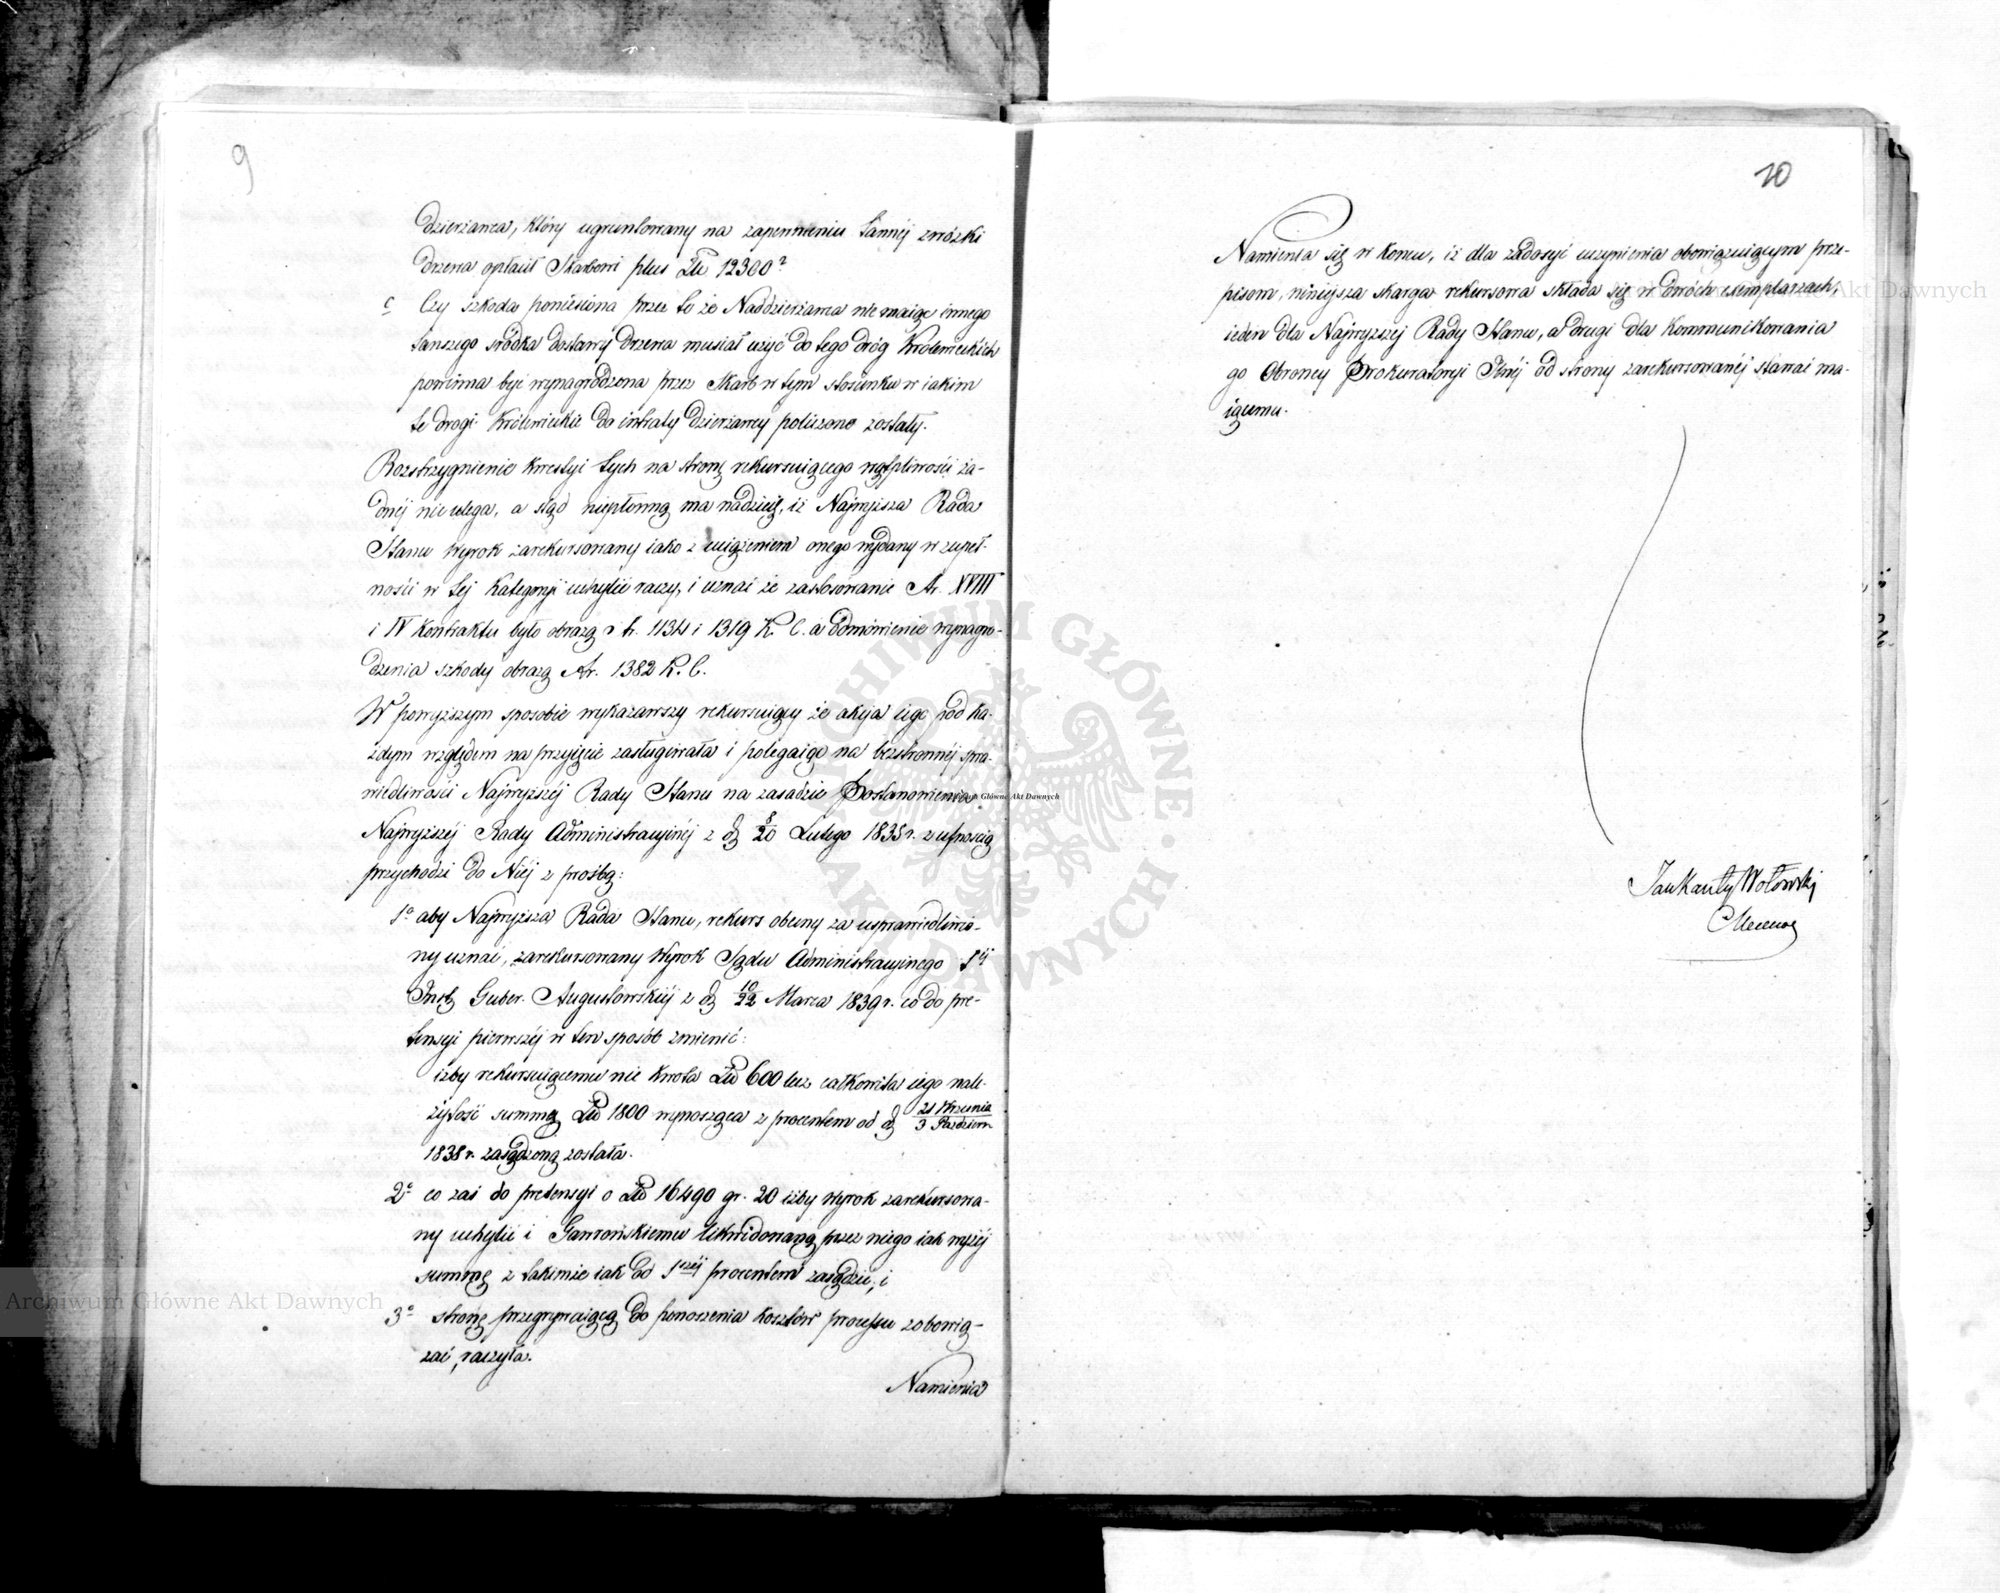 9
dzierżawca, który ugruntowany na zapewnieniu tanniéj zwózki
drzewa opłacił Skarbowi plus Złp 12300?
c Czy szkoda poniesiona przez to że Naddzierżawca nie maiąc innego
tanszego srodka dostawy drzewa musiał użyć do tego dróg Królewieckich
powinna być wynagrodzona przez Skarb w tym stosunku w iakim
te drogi Królewieckie do intraty dzierżawcy policzone zostały.
Rozstrzygnienie kwestyi tych na stronę rekursuiącego wątpliwości ża-
dnéj nie ulega, a stąd niepłonną ma nadzieię, iż Najwyższa Rada
Stanu Wyrok zarekursowany iako z uiążeniem onego wydany w zupeł-
ności w tej kategoryi uchylić raczy, i uznać że zastosowanie Ar. XVIII
i IV Kontraktu było obrazą Ar. 1134 i 1319 K. C. a odmówienie wynagro-
dzenia szkody obrazą Ar. 1382 K. C.
W powyższym sposobie wykazawszy rekursuiący że akcya iego pod ka-
żdym względem na przyięcie zasługiwała i polegaiąc na bezstronnéj spra-
wiedliwości Najwyższéj Rady Stanu na zasadzie Postanowienia
Najwyższéj Rady Administracyinéj z d 8/20 Lutego 1835 r. z ufnoscią
przychodzi do Niéj z prośbą:
1o aby Najwyższa Rada Stanu, rekurs obecny za usprawiedliwio-
ny uznać, zarekursowany Wyrok Sądu Administracyinego 1éj
Insty Guber. Augustowskiéj z d 10/22 Marca 1839 r. co do pre-
tensyi pierwszéj w ten sposób zmienić:
iżby rekursuiącemu nie kwota Złp 600 lecz całkowita iego nale-
żytość summę Złp 1800 wynosząca z procentem od d 21 Września / 3 Paździer.
1838 r. zasądzoną została.
2o co zaś do pretensyi o Złp 16490 gr. 20 iżby Wyrok zarekursowa-
ny uchylić i Gawrońskiemu likwidowaną przez niego iak wyżéj
summę z takimże iak od 1széj procentem zasądzić, i
3o stronę przegrywaiącą do ponoszenia kosztów processu zobowią-
zać raczyła.
Namienia
10
Namienia się w koncu, iż dla zadosyć uczynienia obowiązuiącym prze-
pisom, niniejsza skarga rekursowa składa się w dwóch exemplarzach,
ieden dla Najwyższej Rady Stanu, a drugi dla kommunikowania
go Obroncy Prokuratoryi Jlnéj od strony zarekursowanéj stawać ma-
iącemu.
Jan Kanty Wołowski
Mecenas
Archiwum Główne Akt Dawnych
Archiwum Główne Akt Dawnych
ARCHIWUM GŁÓWNE AKT DAWNYCH